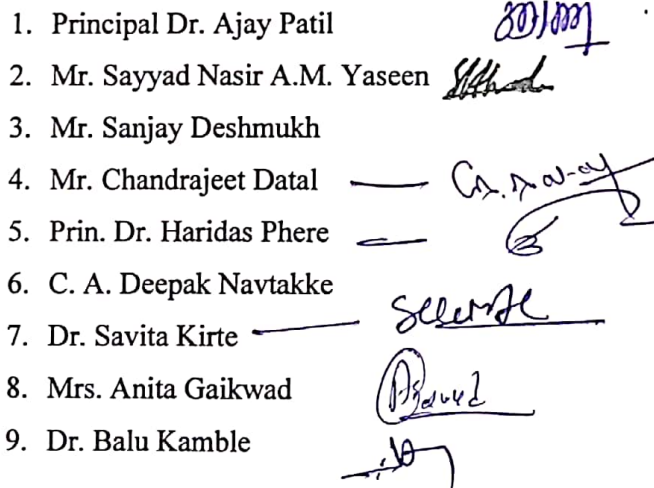 1. Principal Dr. Ajay Patil
2. Mr. Sayyad Nasir A.M. Yaseen
3. Mr. Sanjay Deshmukh
4. Mr. Chandrajeet Datal
5. Prin. Dr. Haridas Phere
6. C. A. Deepak Navtakke
7. Dr. Savita Kirte
8. Mrs. Anita Gaikwad
9. Dr. Balu Kamble